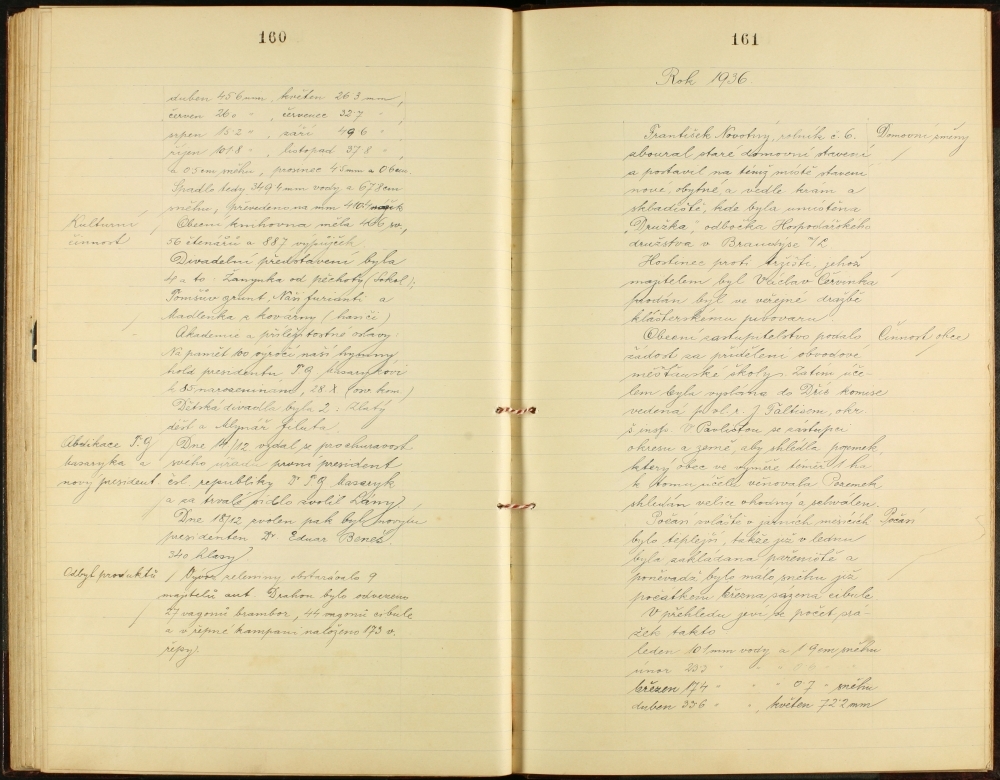 160
duben 45·6 mm, květen 26·3 mm,
červen 26· " , červenec 32·7 "
srpen 15·2 " , září 49·6 "
říjen 101·8 " , listopad 37·8 " ,
a 0·5 cm sněhu, prosinec 45 mm a 0·6 cm.
Spadlo tedy 349·4 mm vody a 67·8 cm
sněhu, převedeno na mm
Kulturní činnost
Obecní knihovna měla sv.,
56 čtenářů a 887 výpůjček
Divadelní představení byla
4 a to: Zanynka od pěchoty (Sokol);
Pomšův grunt, Naši furianti a
Madlenka z kovárny (hasiči)
Akademie a příležitostné oslavy
Na paměť 100 výročí naší hymny
hold presidentu T. G. Masarykovi
k 85 narozeninám, 28. X. (osv. kom.)
Dětská divadla byla 2: Zlatý
déšť a Mlynář filuta.
Abdikace T. G. Masaryka a nový president.
Dne 14/12 vzdal se pro churavost
svého úřadu první president
čsl. republiky Dr T. G. Masaryk
a za trvalé sídlo zvolil Lány
Dne 18/12 zvolen pak byl novým
presidentem Dr. Eduar Beneš
340 hlasy
Odbyt produktů
Vývoz zeleniny obstarávalo 9
majitelů aut. Drahou bylo odvezeno
27 vagonů brambor, 44 vagonů cibule
a v řepné kampani naloženo 173 v.
řepy.
161
Rok 1936.
František Novotný, rolník č. 6. Domovní změny
zboural staré domovní stavení
a postavil na témž místě stavení
nové, obytné a vedle krám a
skladiště, kde byla umístěna
"Družka", odbočka Hospodářského
družstva v Brandýse n/L
Hostinec proti tržišti, jehož
majitelem byl Václav Červinka
prodán byl ve veřejné dražbě
klášterskému pivovaru.
Obecní zastupitelstvo podalo Činnost obce
žádost za přidělení obvodové
měšťanské školy. Zatím úče-
lem byla vyslána do Dřís komise
vedená p. ol. r. J. Paltisem, okr.
š. insp. V. Pavlistou se zástupci
okresu a země, aby shlédla pozemek,
který obec ve výměře téměř 1 ha
k tomu účelu věnovala. Pozemek
shledán velice vhodný a schválen.
Počasí zvláště v zimních měsících Počasí
bylo teplejší, takže již v lednu
byla zakládána pařeniště a
poněvadž bylo málo sněhu již
počátkem března sázena cibule
V přehledu jeví se počet srá-
žek takto
leden 10·1 mm vody a 1·9 cm sněhu
únor 23·3 " "
březen 17·4 " " 0·7 " sněhu
duben 33·6 " " , květen 72·2 mm